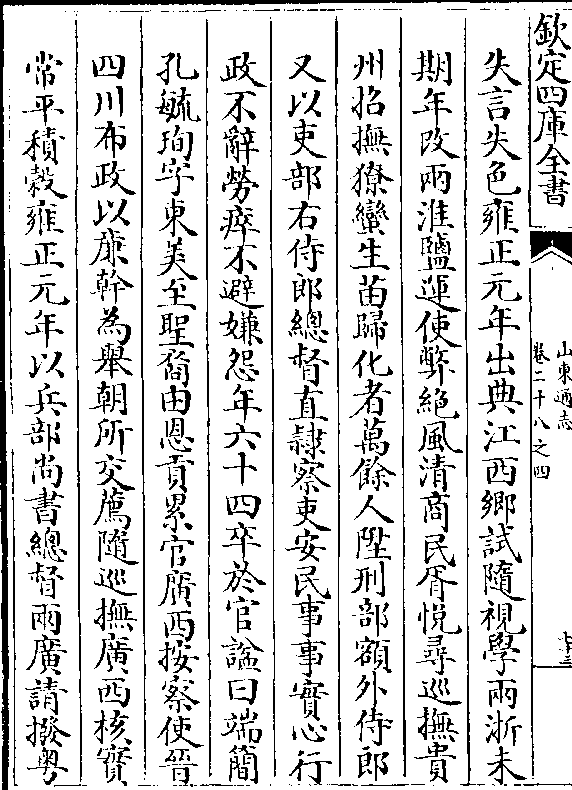 欽定四庫全書
山東通志
卷二十八之四
失言失色雍正元年出典江西鄉試隨視學兩浙未
期年改兩淮鹽運使弊絶風清商民胥悅尋巡撫貴
州招撫獠蠻生苗歸化者萬餘人陞刑部額外侍郎
又以吏部右侍郎總督直隸察吏安民事事實心行
政不辭勞瘁不避嫌怨年六十四卒於官諡曰端簡
孔毓珣字東美至聖裔由恩貢累官廣西按察使晉
四川布政以廉幹為舉朝所交薦隨巡撫廣西核實
常平積穀雍正元年以兵部尚書總督兩廣請撥粤